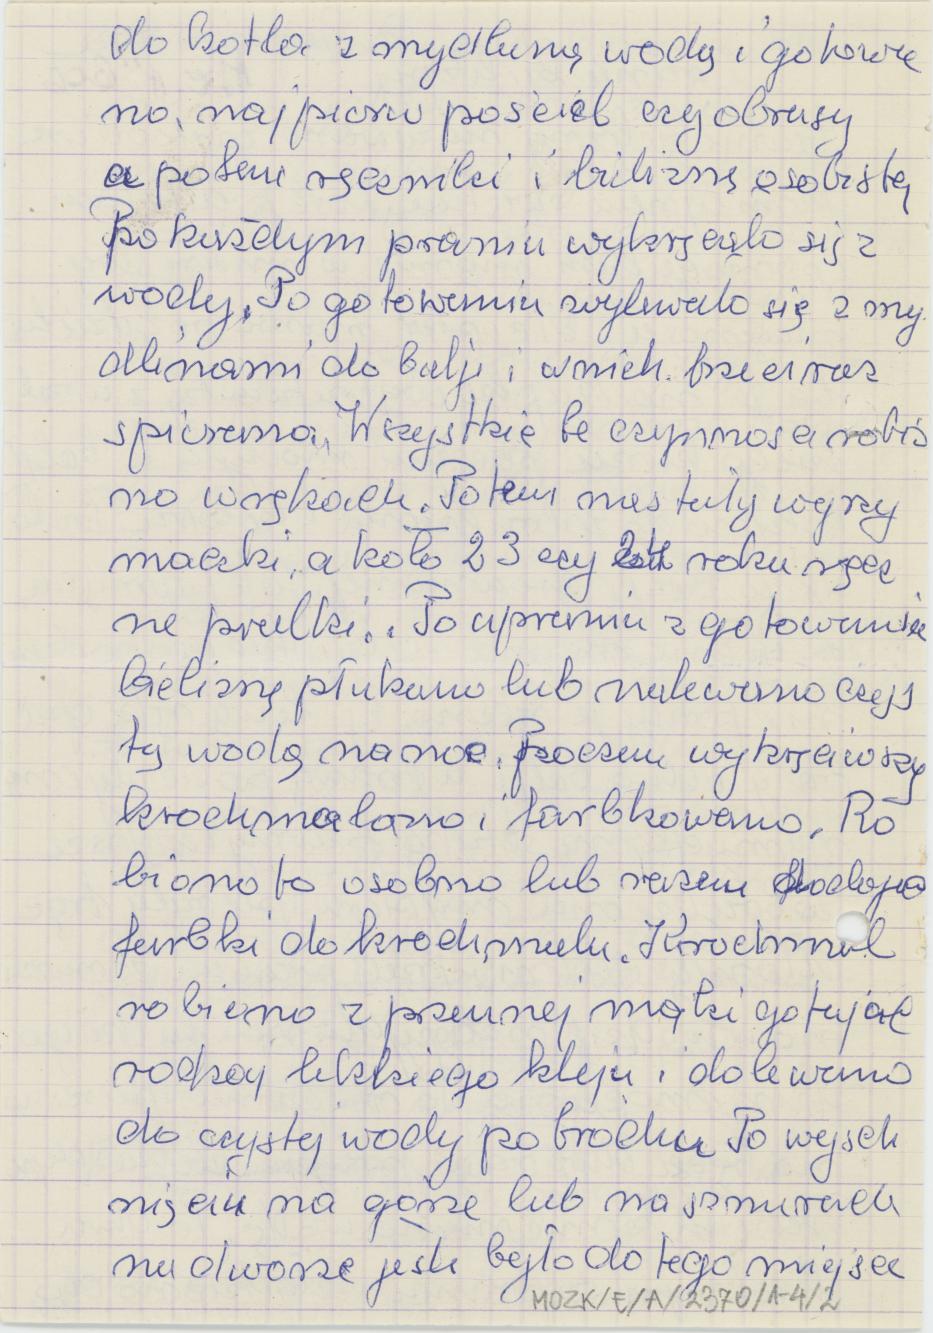 do kotła z mydluną wodą i gotowa
no, najpierw pościeb czy obrusy
a potem ręczniki i bieliznę osobistą
Po każdym praniu wykręcało się z
wody. Po gotowaniu wylewało się z my
dlinami do balji i w nich trzeci raz
spierano. Wszystkie te czynnosci robio
no w rękach. Potem nastały wyży
maczki, a koło 23 czy 24 roku ręcz
ne pralki.. Po upraniu z gotowania
bieliznę płukano lub nalewano czys
tą wodą na noc. Poczem wykręciwszy
krochmalono i farbkowano. Ro
biono to osobno lub razem dodając
farbki do krochmalu. Krochmal
robiono z pszennej mąki gotując
rodzaj lekkiego kleju i dolewano
do czystej wody po trochu Po wysch
nięciu na górze lub na sznurach
na dworze jeśli było do tego miejsce
MOZK/E/A/2370/1-4/2